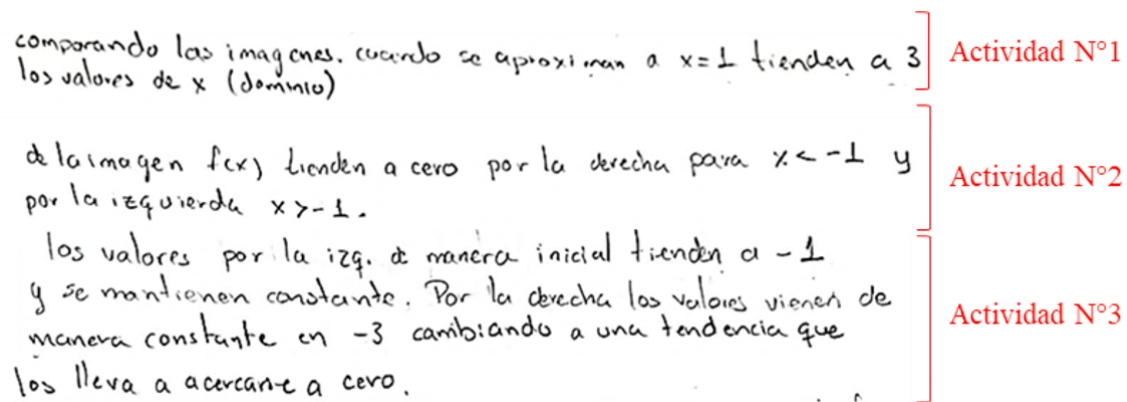 comparando las imagenes. cuando se aproximan a x=1 tienden a 3
los valores de x (dominio)
Actividad N°1
de la imagen f(x) tienden a cero por la derecha para x<-1 y
por la izquierda x>-1.
Actividad N°2
los valores por la izq. de manera inicial tienden a -1
y se mantienen constante. Por la derecha los valores vienen de
manera constante en -3 cambiando a una tendencia que
los lleva a acercarse a cero.
Actividad N°3